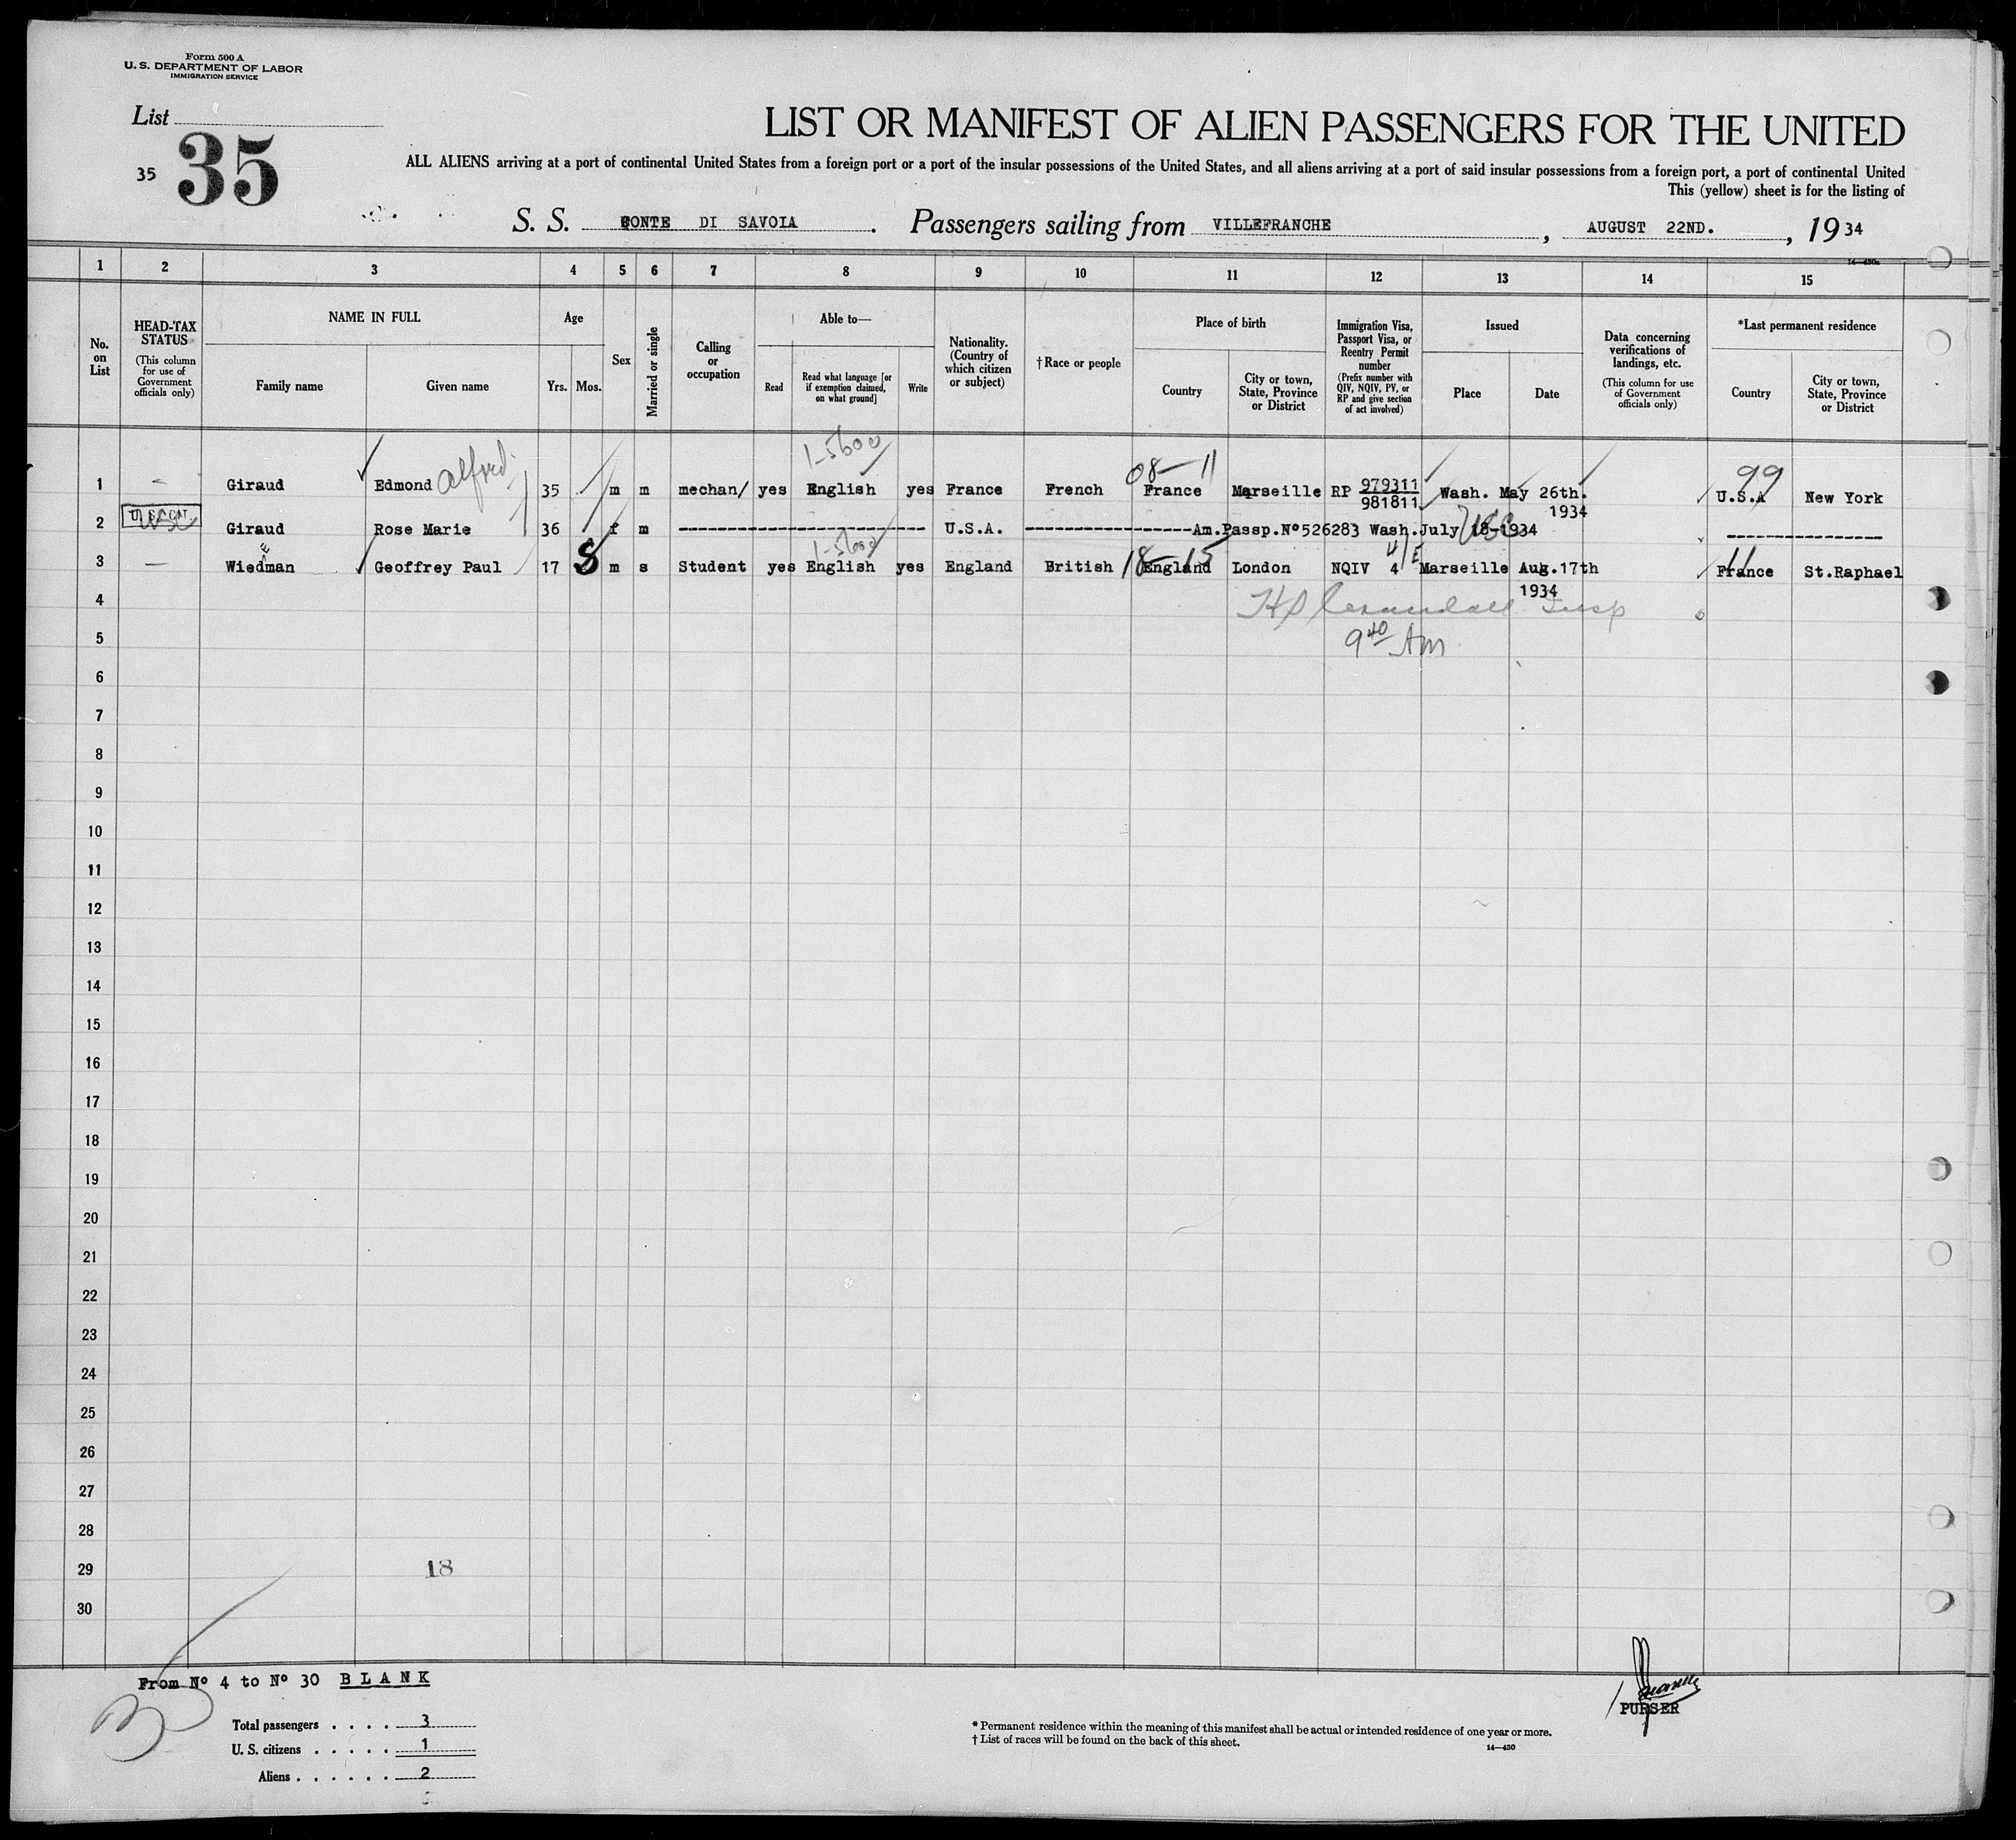 Form 500 A
U. S. DEPARTMENT OF LABOR
IMMIGRATION SERVICE
List
35 35
LIST OR MANIFEST OF ALIEN PASSENGERS FOR THE UNITED
ALL ALIENS arriving at a port of continental United States from a foreign port or a port of the insular possessions of the United States, and all aliens arriving at a port of said insular possessions from a foreign port, a port of continental United
This (yellow) sheet is for the listing of
S. S. CONTE DI SAVOIA. Passengers sailing from VILLEFRANCHE, AUGUST 22ND., 19 34
14—430a
1 2 3 4 5 6 7 8 9 10 11 12 13 14 15
No. on List
HEAD-TAX STATUS
(This column for use of Government officials only)
NAME IN FULL
Family name Given name
Age
Yrs. Mos.
Sex
Married or single
Calling or occupation
Able to—
Read
Read what language [or if exemption claimed, on what ground]
Write
Nationality. (Country of which citizen or subject)
† Race or people
Place of birth
Country
City or town, State, Province or District
Immigration Visa, Passport Visa, or Reentry Permit number
(Prefix number with QIV, NQIV, PV, or RP and give section of act involved)
Issued
Place Date
Data concerning verifications of landings, etc.
(This column for use of Government officials only)
*Last permanent residence
Country
City or town, State, Province or District
1-5600
08-11 99
1 — Giraud Edmond Alfred 35 m m mechan/ yes English yes France French France Marseille RP 979311 981811 Wash. May 26th. 1934 U.S.A New York
2 USC Giraud Rose Marie 36 f m ------------------------- U.S.A. -----------------Am.Passp.Nº526283 Wash.July 18-1934 USC ----------------
1-5600
18-15 4/E 11
3 — Wiedman E Geoffrey Paul 17 8 m s Student yes English yes England British England London NQIV 4 Marseille Aug.17th 1934 France St.Raphael
4
Insp
5 9 40 AM
6
7
8
9
10
11
12
13
14
15
16
17
18
19
20
21
22
23
24
25
26
27
28
29 18
30
From Nº 4 to Nº 30 BLANK
Total passengers . . . . 3
U. S. citizens . . . . . 1
Aliens . . . . . . 2
* Permanent residence within the meaning of this manifest shall be actual or intended residence of one year or more.
† List of races will be found on the back of this sheet.
14—430
PURSER